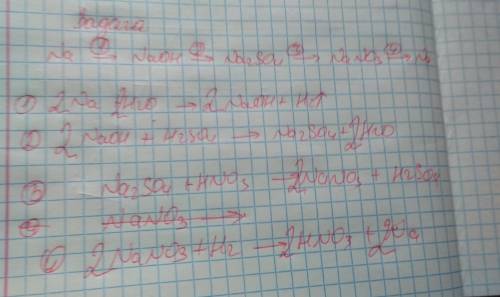 Задача
Na ①→ NaOH ②→ Na2SO4 ③→ NaNO3 ④→ Na
① 2Na 2H2O → 2NaOH + H2↑
② 2NaOH + H2SO4 → Na2SO4 + 2H2O
③ Na2SO4 + HNO3 → 2NaNO3 + H2SO4
NaNO3 →
2NaNO3 + H2 → 2HNO3 + 2Na